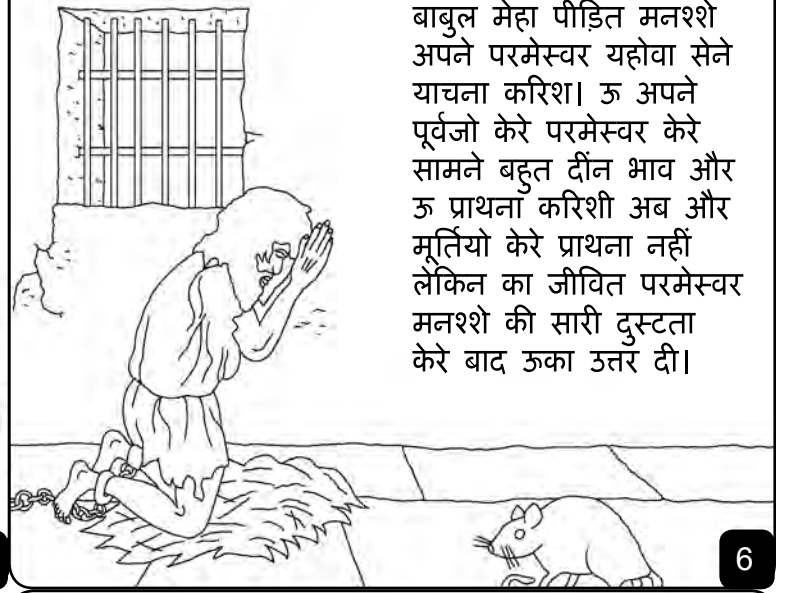 बाबुल मेहा पीड़ित मनश्शे
अपने परमेस्वर यहोवा सेने
याचना करिश। ऊ अपने
पूर्वजो केरे परमेस्वर केरे
सामने बहुत दींन भाव और
ऊ प्राथना करिशी अब और
मूर्तियो केरे प्राथना नहीं
लेकिन का जीवित परमेस्वर
मनश्शे की सारी दुस्टता
केरे बाद ऊका उत्तर दी।
6